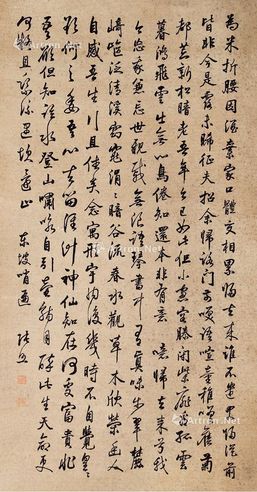 為米折腰因酒棄家口體交相累歸去來誰不遣君歸從前
皆非今是露未晞征夫指余歸路門前笑語喧童稚嗟舊菊
都荒新松暗老吾年今已如此但小窗容膝閉柴扉策杖看孤雲
暮鴻飛雲出無心鳥倦知還本非有意 噫歸去來兮我
今忘我兼忘世親戚無浪語琴書中有真味步翠麓
崎嶇泛清溪窈窕涓涓暗谷流春水觀草木欣榮幽人
自感吾生行且休矣念寓形宇內復幾時不自覺皇皇
欲何之委吾心去留誰計神仙知在何處富貴非
吾願但知臨水登山嘯詠自引壺觴自醉此生天命更
何疑且乘流遇坎還止 東坡哨遍